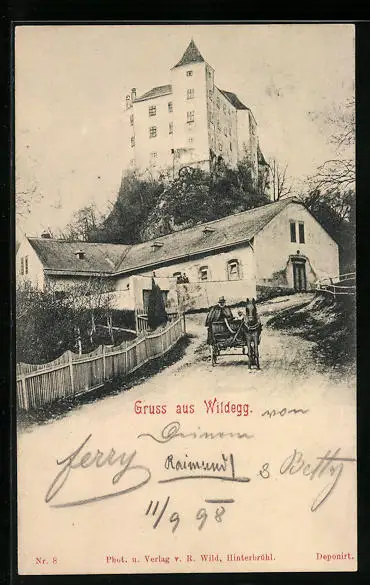 Gruss aus Wildegg. von
Deinem
Ferry Raimund & Betty
11/9 98
Nr. 8 Phot. u. Verlag v. R. Wild, Hinterbrühl. Deponirt.